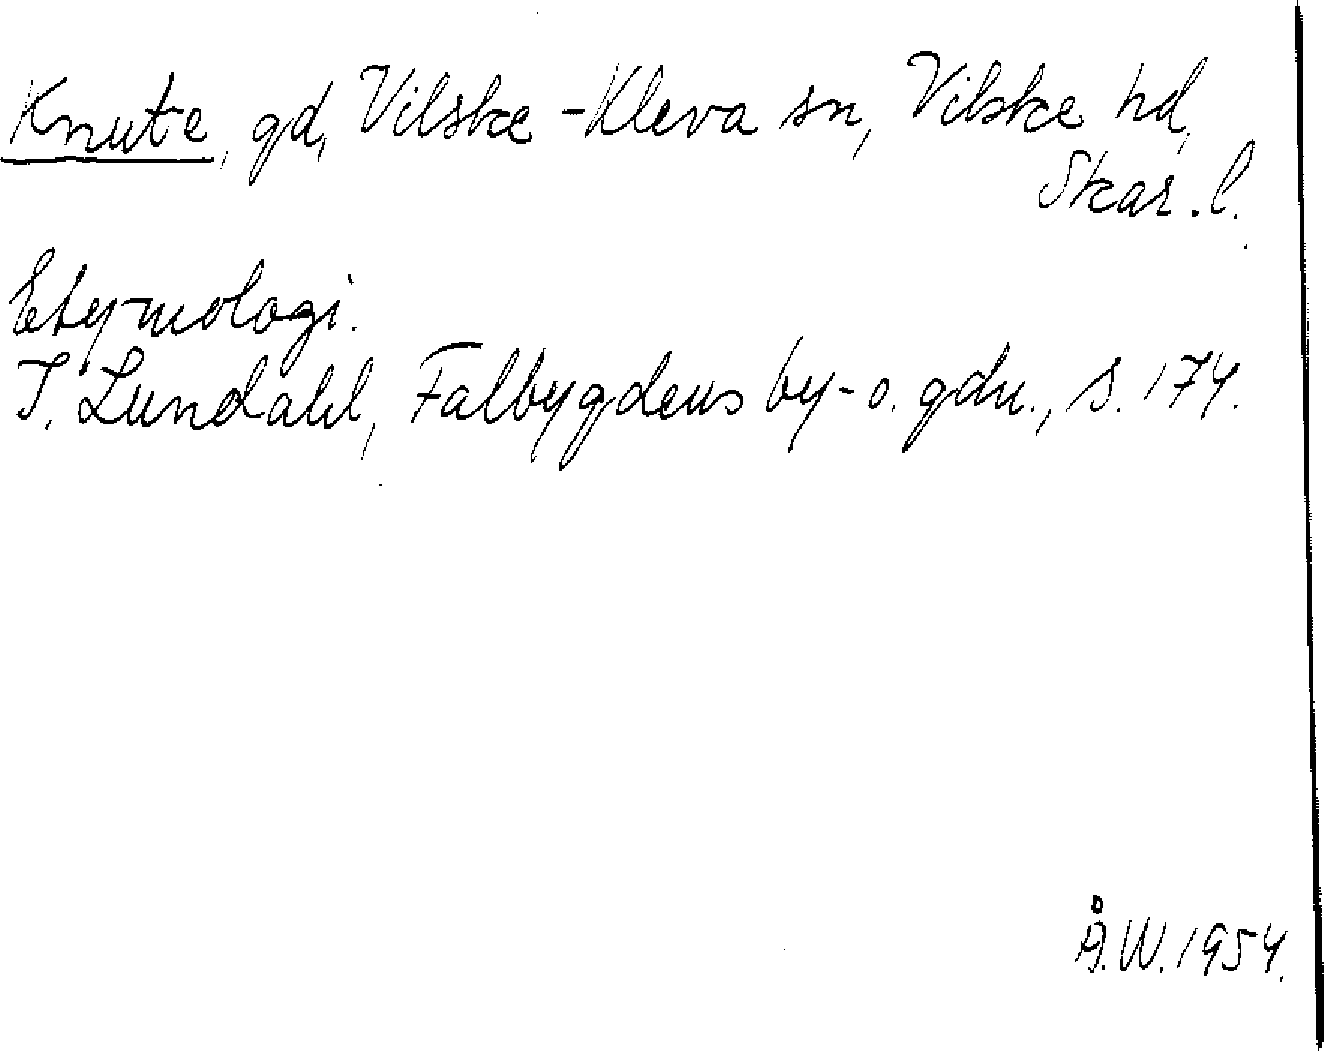 Knute, gd, Vilske-Kleva sn, Vilske hd,
Skar. l.
Etymologi.
I. Lundahl, Falbygdens by- o. gdn., s. 174.
Å.W. 1954.